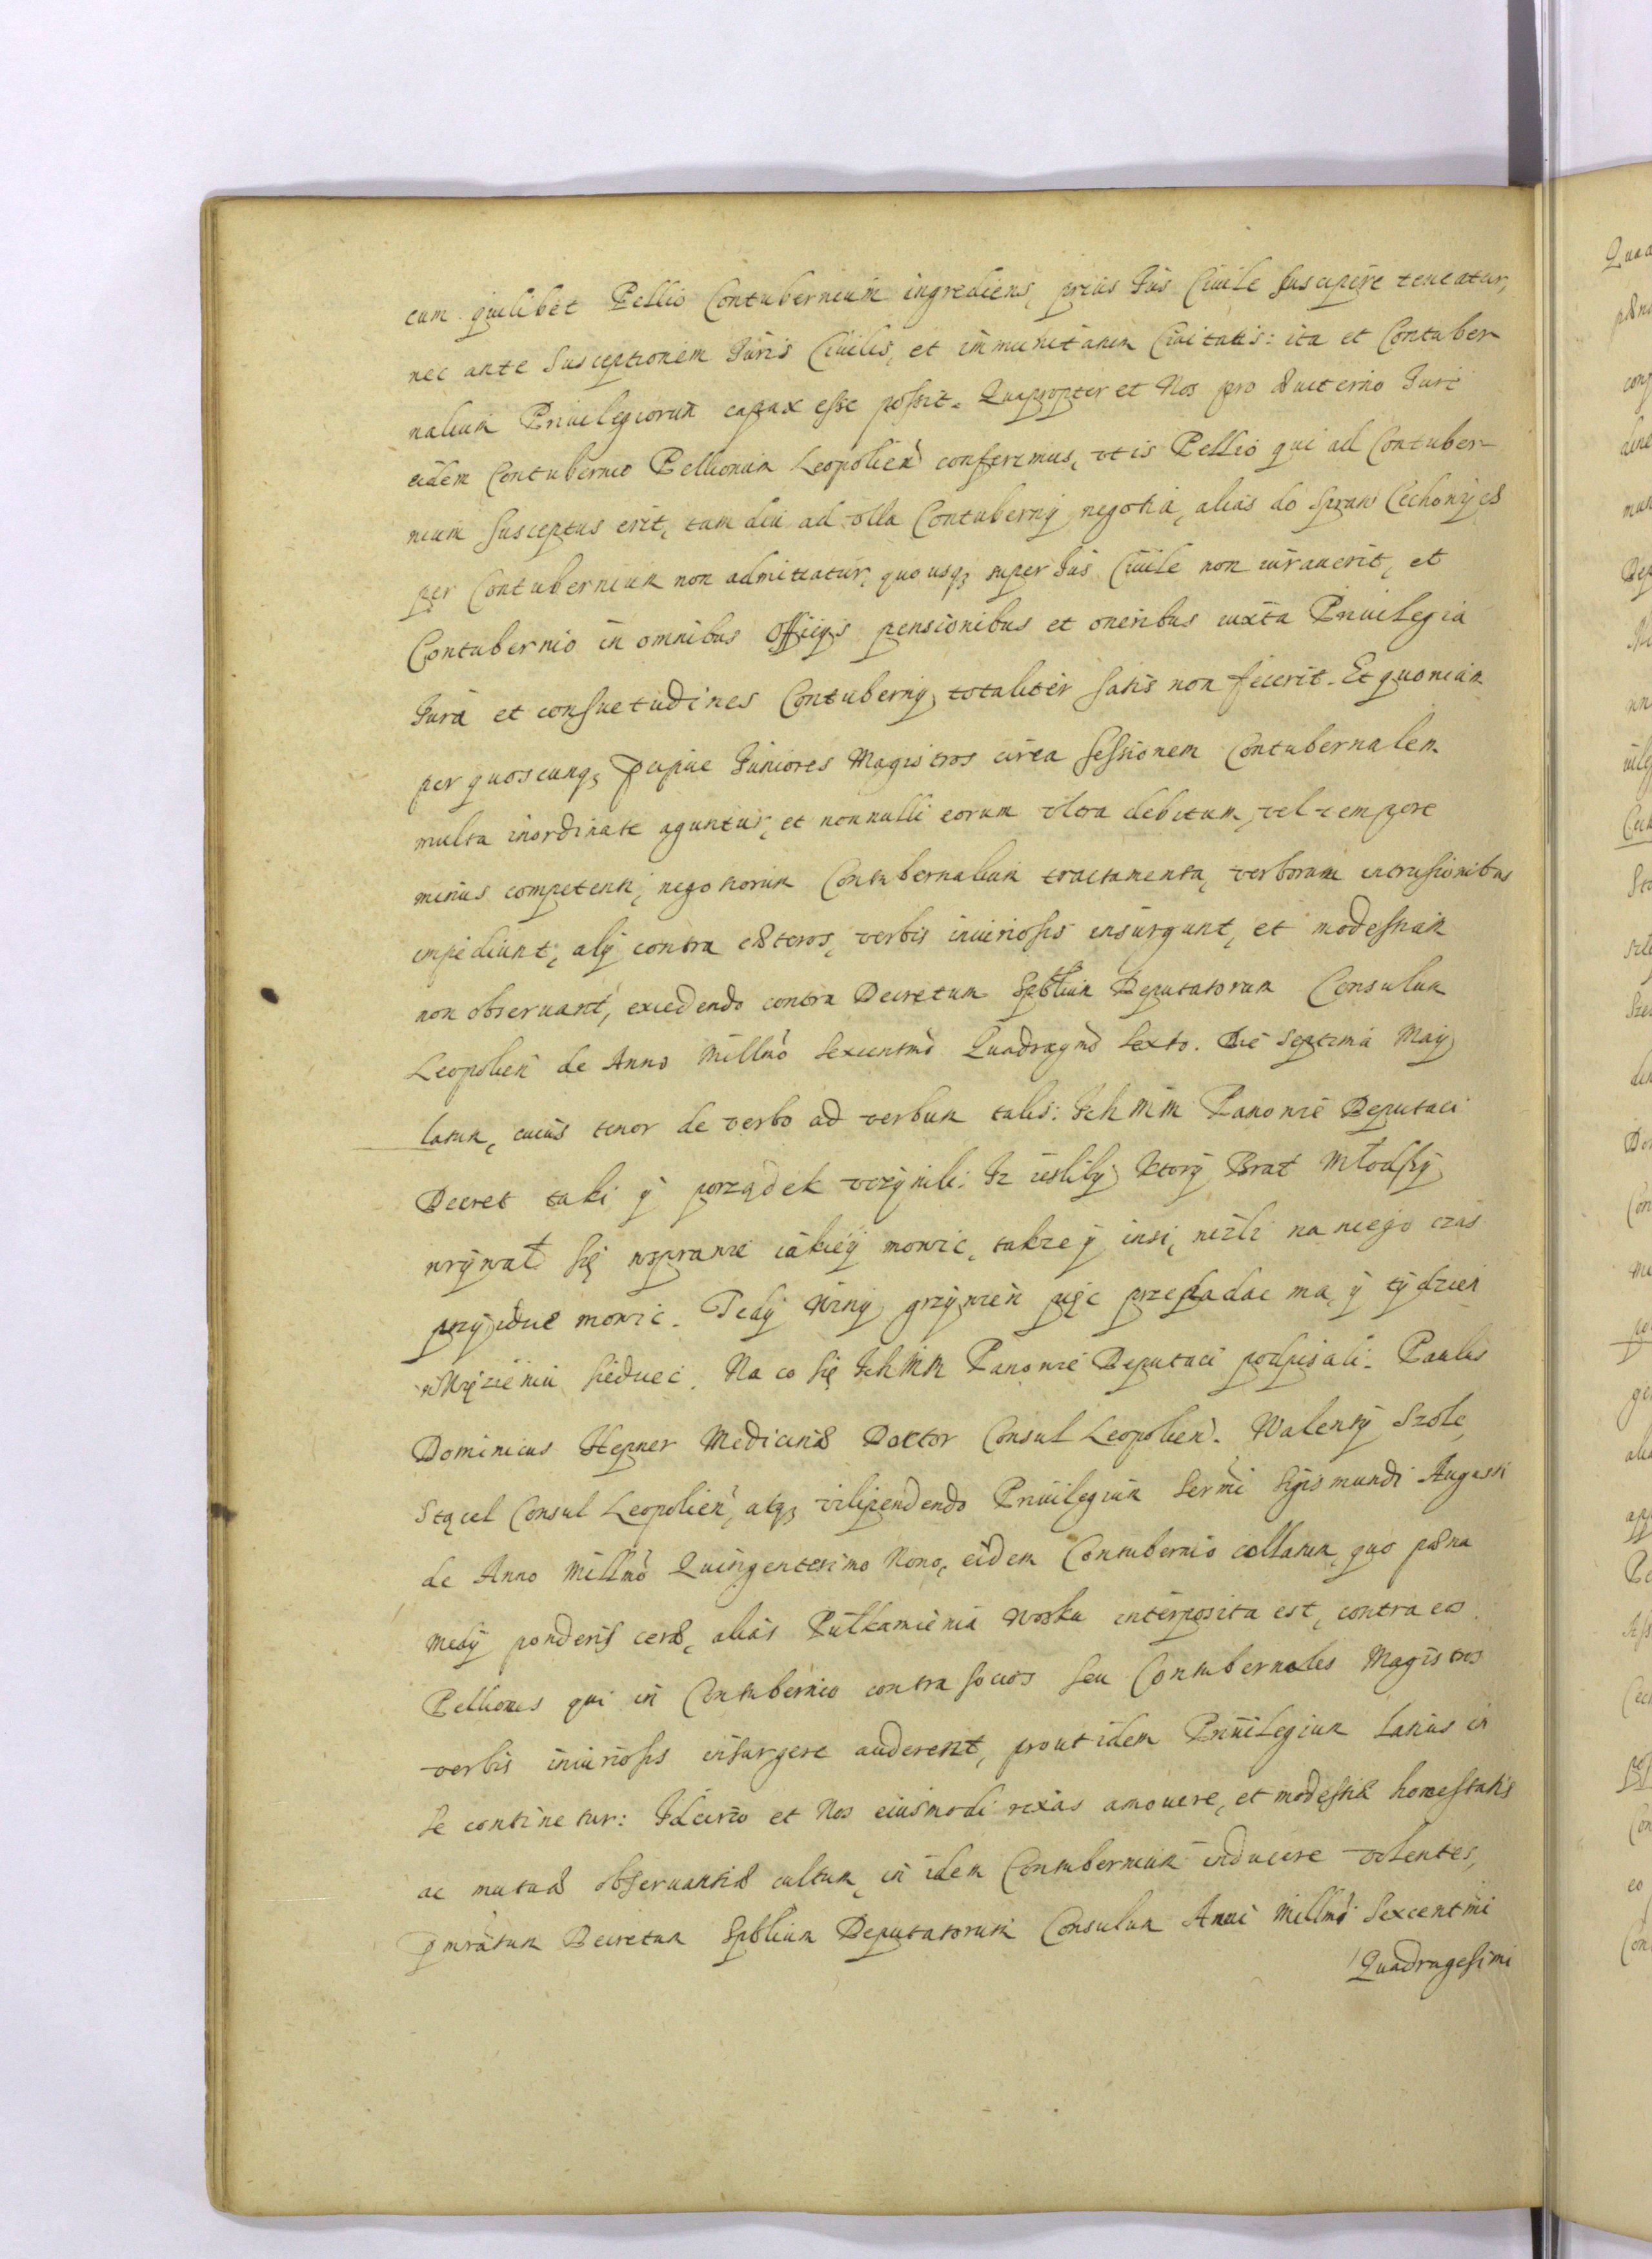 cum quilibet Pellio Contubernium ingrediens, prius Jus Ciuile suscipere teneatur,
nec ante susceptionem Juris Ciuilis, et immunitatum Ciuitatis: ita et Contuber
nalium Priuilegiorum capax esse possit. Quapropter et Nos pro aucterno Juri
eidem Contubernio Pellionum Leopolien conferimus, vt is Pellio qui ad Contuber-
nium susceptus erit, tam diu ad vlla Contubernÿ negotia, alias do spraw Cechowÿch
per Contubernium non admittatur, quousq; super Jus Ciuile non iurauerit, et
Contubernio in omnibus Officÿs pensionibus et oneribus iuxta Priuilegia
Jura et consuetudines Contubernÿ totaliter satis non fecerit. Et quoniam
per quoscunq; pcipue Juniores Magistros circa sessionem Contubernalem
multa inordinate aguntur, et nonnulli eorum vltra debitum, vel tempore
minus competenti, negotiorum Contubernalium tractamenta, verborum intrusionibus
impediunt, alÿ contra cæteros, verbis iniuriosis insurgunt, et modestiam
non obseruant, excedendo contra Decretum Spblium Deputatorum Consulum
Leopolien de Anno Millmo Sexcentmo Quadragmo Sexto. Die Septima Maÿ
latum, cuius tenor de verbo ad verbum talis: Ich Mm Panowie Deputaci
Decret taki ÿ porządek vczÿnili: Iz iesliby ktorÿ Brat Młodszÿ
wrÿwał się wsprawie iakieÿ mowic, takze ÿ insi, nizli na niego czas
przÿidzie mowic. Tedÿ Winÿ grzÿwien pięc przepadac ma, ÿ tÿdzien
w Więzieniu siedziec. Na co się Ich Mm Panowie Deputaci podpisali. Paulus
Dominicus Hepner Medicinæ Doctor Consul Leopolien. Walentÿ Szole
Stącel Consul Leopolien, atq; vilipendendo Priuilegium Sermi Sigismundi Augusti
de Anno Millmo Quingentesimo Nono, eidem Contubernio collatum, quo pæna
medÿ ponderis ceræ, alias Pułkamienia Wosku interposita est, contra eos
Pelliones qui in Contubernio contra socios seu Contubernales Magistros
verbis iniuriosis insurgere auderent, prout idem Priuilegium latius in
se continetur: Idcirco et Nos eiusmodi rixas amouere, et modestiæ honestatis
ac mutuæ obseruantiæ cultum, in idem Contubernium inducere volentes,
pmratum Decretum Spblium Deputatorum Consulum Anni Millmi Sexcentmi
Quadragesimi